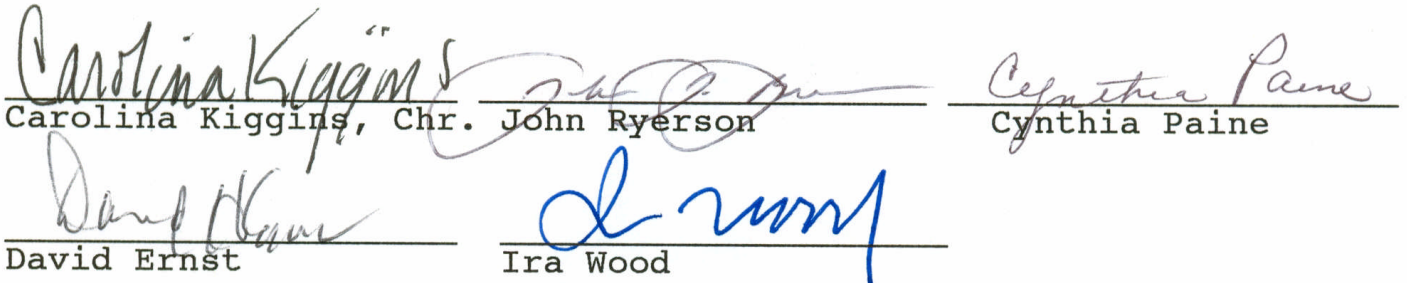 Carolina Kiggins Cynthia Paine
Carolina Kiggins, Chr. John Ryerson Cynthia Paine
David Ernst Ira Wood